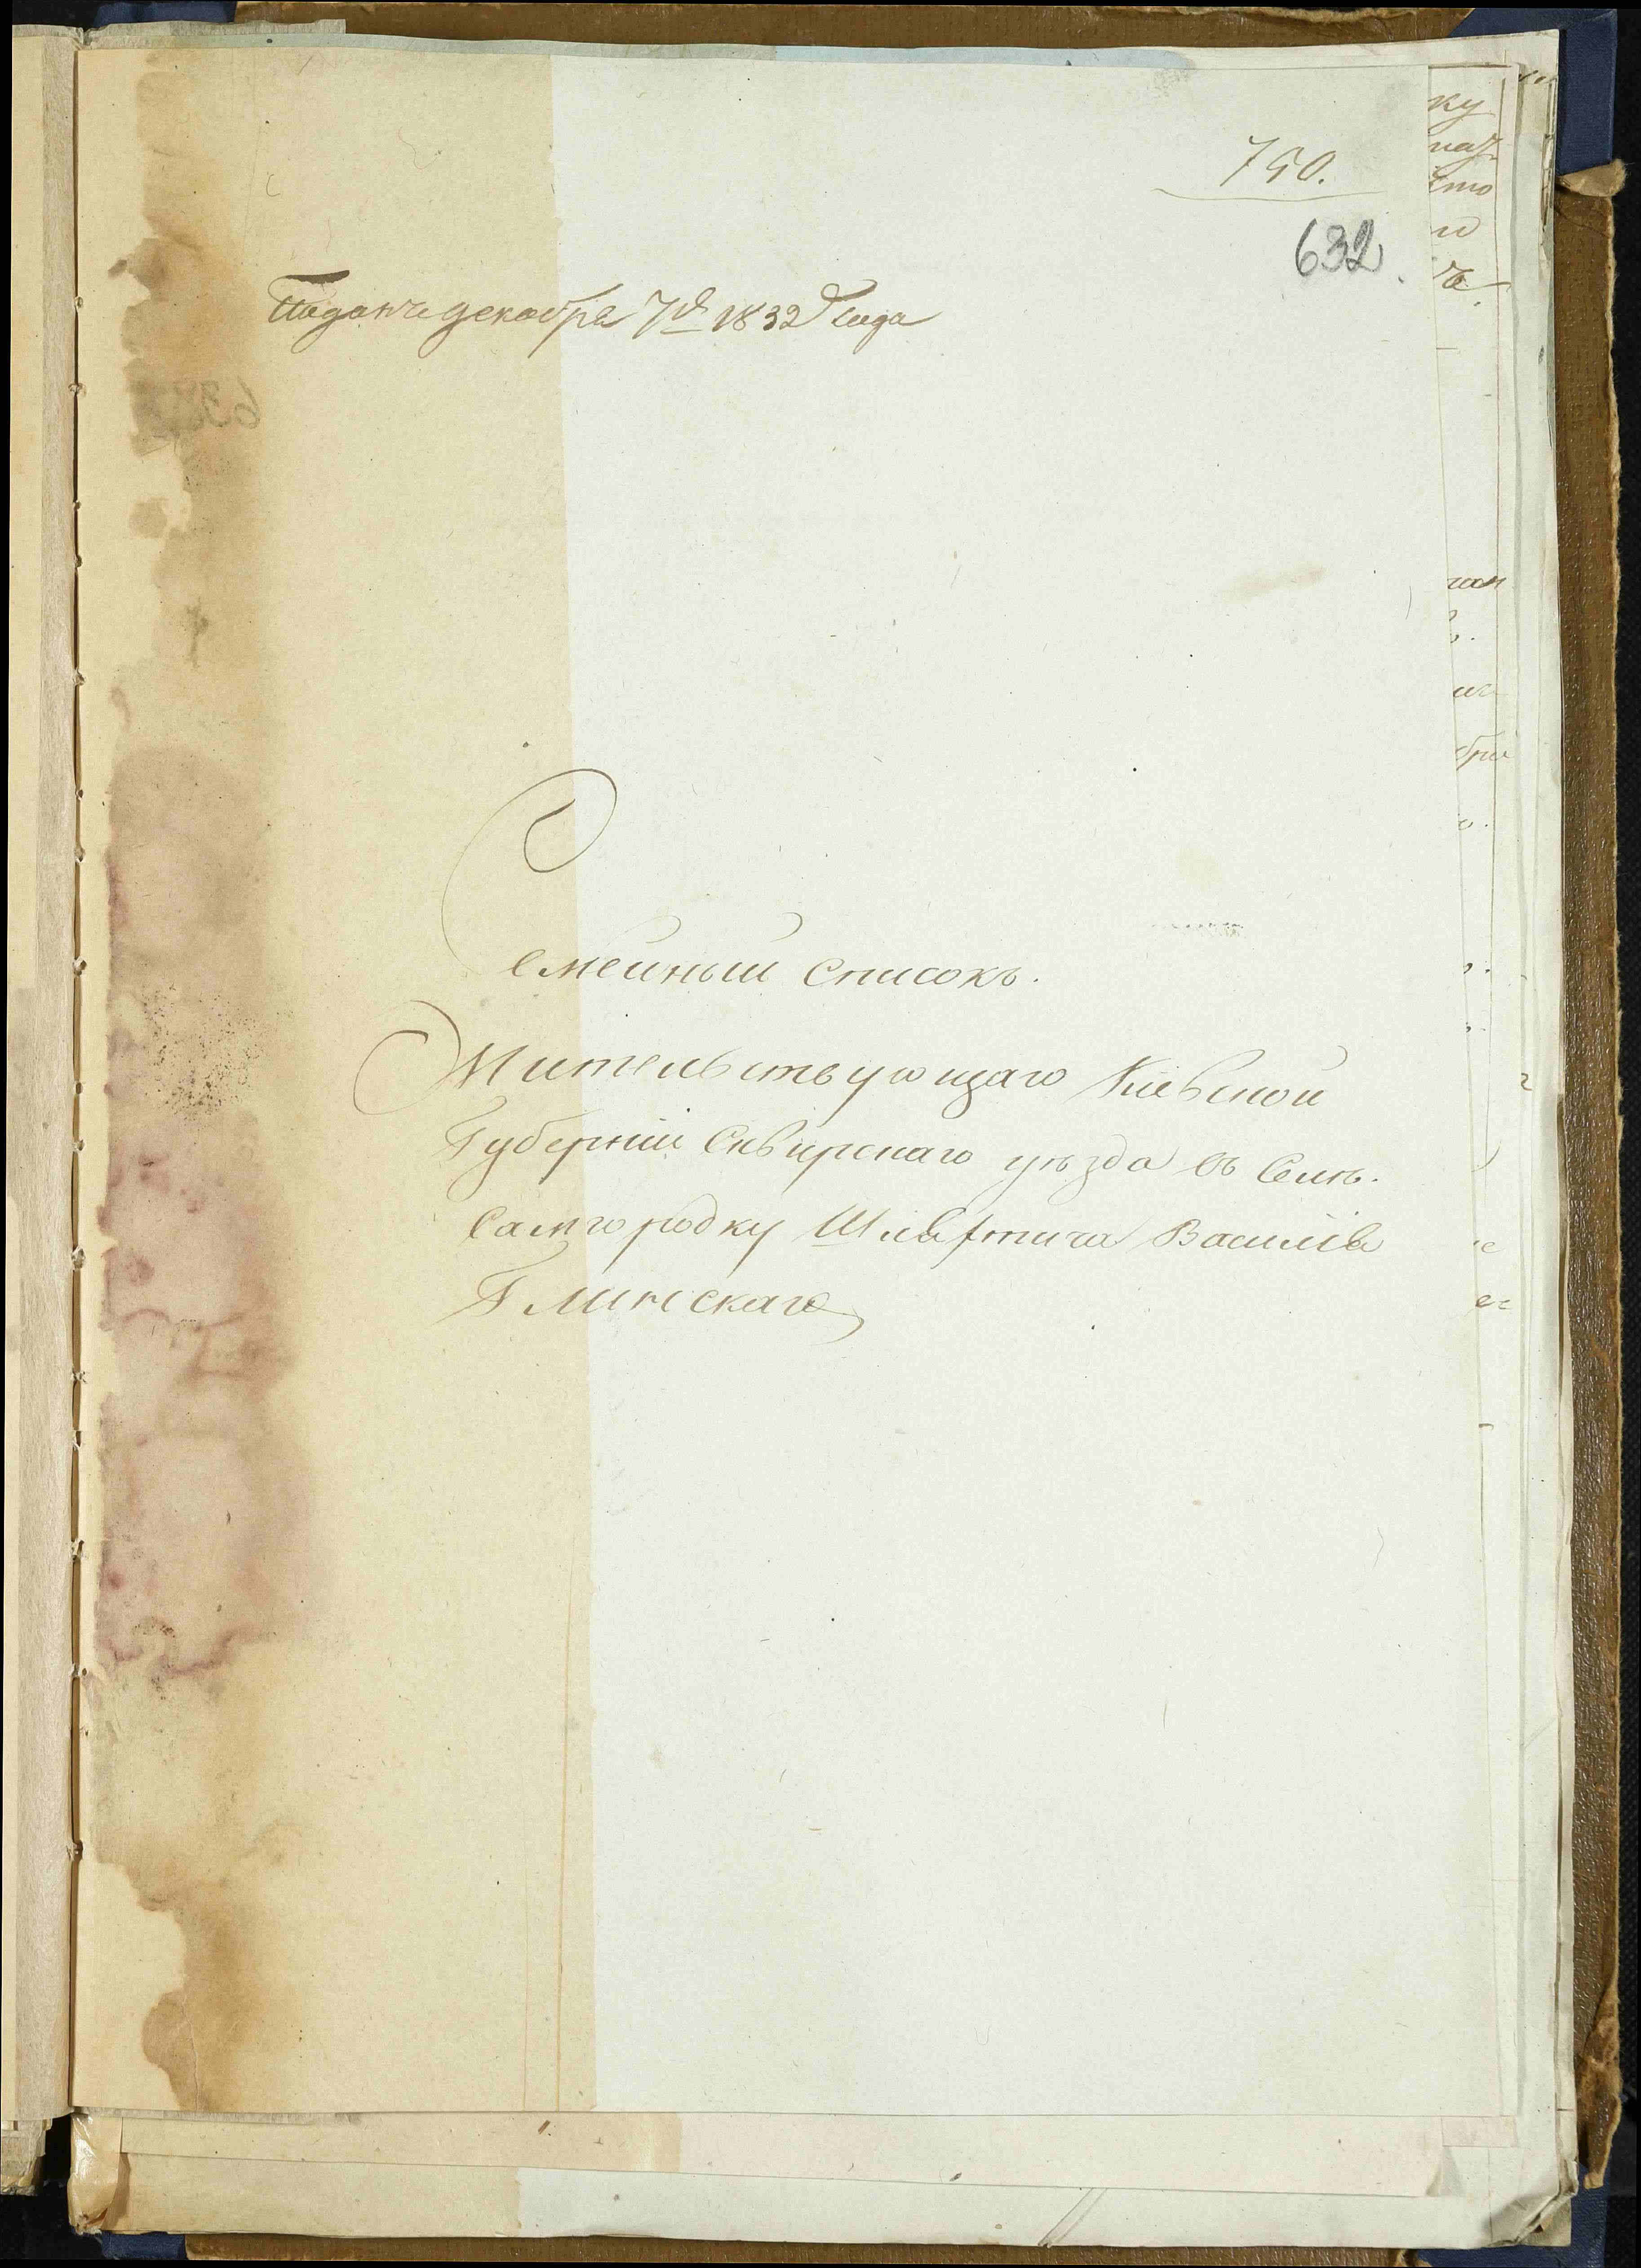 750.
632
Поданъ декабря 7д 1832 Года
Семейный списокъ.
Жительствующаго Кіевской
Губерніи Сквирскаго уѣзда въ Селѣ.
Самгородку Шляхтича Василія
Глинскаго